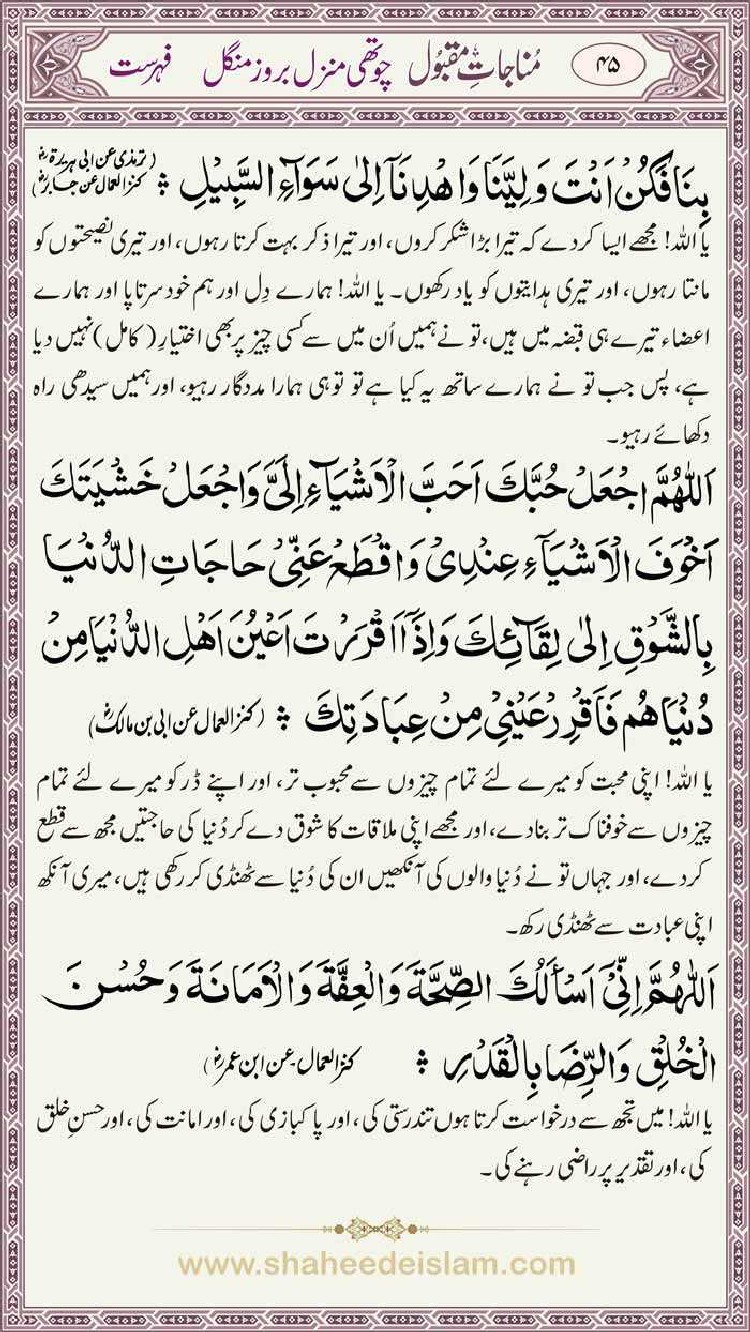 ۴۵ مُناجاتِ مقبُول چوتھی منزل بروز منگل فہرست
بِنَا فَكُنْ اَنْتَ وَلِيَّنَا وَاهْدِنَآ اِلٰى سَوَآءِ السَّبِيْلِ ؞ (ترمذی عن ابی ہریرۃؓ کنز العمال عن جابرؓ)
یا اللہ! مجھے ایسا کردے کہ تیرا بڑا شکر کروں، اور تیرا ذکر بہت کرتا رہوں، اور تیری نصیحتوں کو
مانتا رہوں، اور تیری ہدایتوں کو یاد رکھوں۔ یا اللہ! ہمارے دِل اور ہم خود سرتاپا اور ہمارے
اعضاء تیرے ہی قبضہ میں ہیں، تو نے ہمیں اُن میں سے کسی چیز پر بھی اختیارِ (کامل) نہیں دیا
ہے، پس جب تو نے ہمارے ساتھ یہ کیا ہے تو تو ہی ہمارا مددگار رہیو، اور ہمیں سیدھی راہ
دکھائے رہیو۔
اَللّٰهُمَّ اجْعَلْ حُبَّكَ اَحَبَّ الْاَشْيَآءِ اِلَيَّ وَاجْعَلْ خَشْيَتَكَ
اَخْوَفَ الْاَشْيَآءِ عِنْدِىْ وَاقْطَعْ عَنِّىْ حَاجَاتِ الدُّنْيَا
بِالشَّوْقِ اِلٰى لِقَآئِكَ وَاِذَآ اَقْرَرْتَ اَعْيُنَ اَهْلِ الدُّنْيَا مِنْ
دُنْيَاهُمْ فَاَقْرِرْ عَيْنِىْ مِنْ عِبَادَتِكَ ؞ (کنز العمال عن ابی بن مالکؓ)
یا اللہ! اپنی محبت کو میرے لئے تمام چیزوں سے محبوب تر، اور اپنے ڈر کو میرے لئے تمام
چیزوں سے خوفناک تر بنادے، اور مجھے اپنی ملاقات کا شوق دے کر دُنیا کی حاجتیں مجھ سے قطع
کردے، اور جہاں تو نے دُنیا والوں کی آنکھیں ان کی دُنیا سے ٹھنڈی کر رکھی ہیں، میری آنکھ
اپنی عبادت سے ٹھنڈی رکھ۔
اَللّٰهُمَّ اِنِّىْٓ اَسْأَلُكَ الصِّحَّةَ وَالْعِفَّةَ وَالْاَمَانَةَ وَحُسْنَ
الْخُلُقِ وَالرِّضَا بِالْقَدْرِ ؞ کنز العمال عن ابن عمرؓ)
یا اللہ! میں تجھ سے درخواست کرتا ہوں تندرستی کی، اور پاکبازی کی، اور امانت کی، اور حسنِ خلق
کی، اور تقدیر پر راضی رہنے کی۔
www.shaheedeislam.com